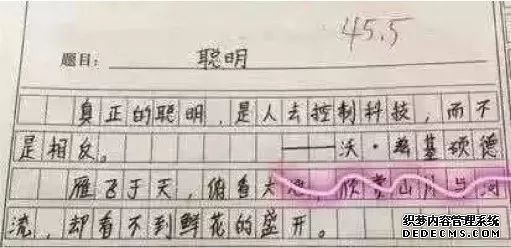 45.5
题目： 聪明
真正的聪明，是人去控制科技，而不
是相反。 ——沃·兹基硕德
雁飞于天，俯看大地，欣赏山川与河
流，却看不到鲜花的盛开。
织梦内容管理系统
DEDECMS.COM